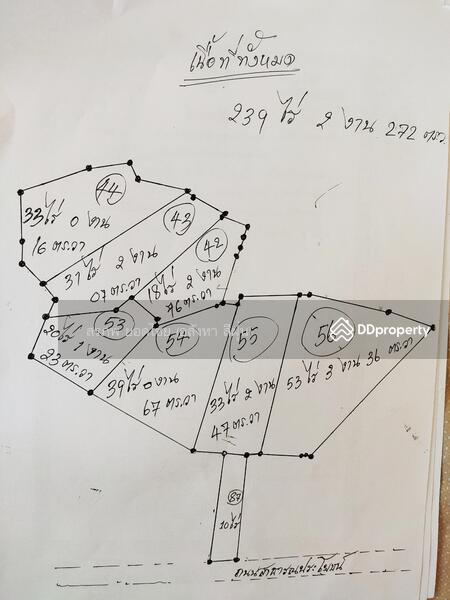 เนื้อที่ทั้งหมด
239 ไร่ 2 งาน 272 ตร.ว.
44
33 ไร่ 0 งาน
16 ตร.วา
43
31 ไร่ 2 งาน
07 ตร.วา
42
18 ไร่ 2 งาน
76 ตร.วา
53
20 ไร่ 1 งาน
23 ตร.วา
54
39 ไร่ 0 งาน
67 ตร.วา
55
33 ไร่ 2 งาน
47 ตร.วา
56
53 ไร่ 3 งาน 36 ตร.วา
DDproperty
87
10 ไร่
ถนนสาธารณประโยชน์